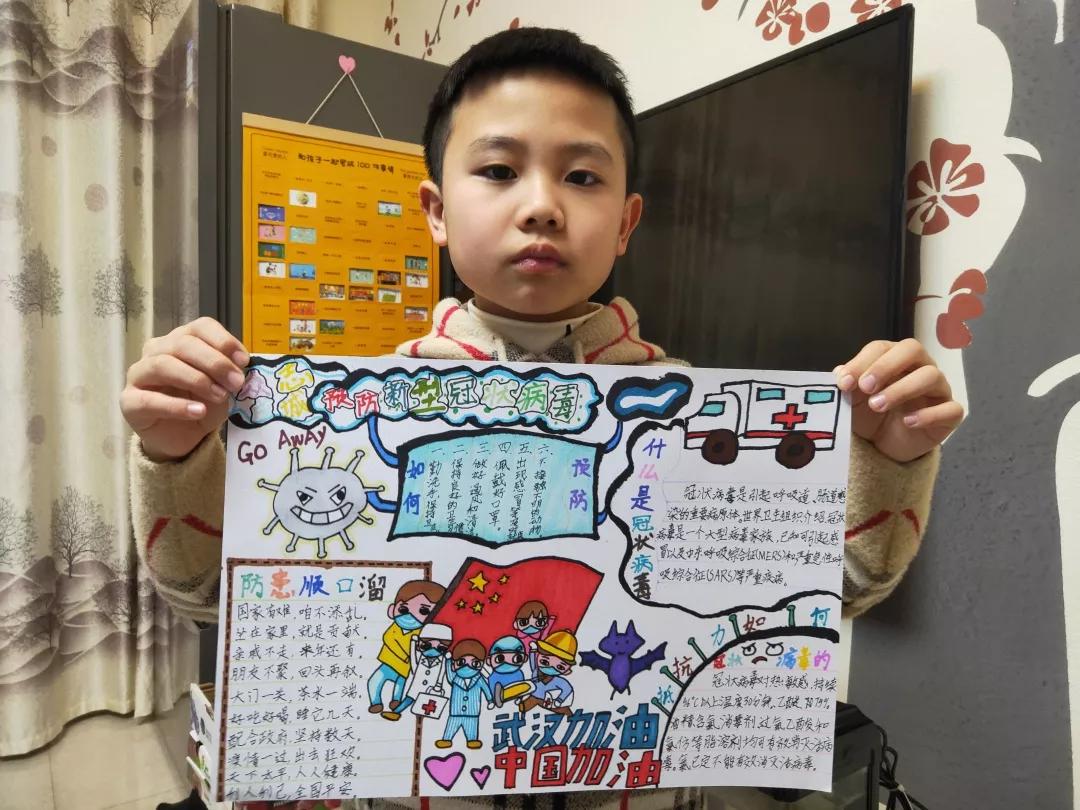 和孩子一起完成100件事情
众志
成城
预防新型冠状病毒
GO AWAY
如何
预防
一、勤洗手,保持卫
二、保持良好的卫
三、做好通风和清
四、佩戴好口罩
五、出现感冒
六、不接触不明的动物
什么是冠状病毒
冠状病毒是引起呼吸道、肠道感
染的重要病原体。世界卫生组织介绍冠状
病毒是一个大型病毒家族,已知可引起感
冒以及中东呼吸综合征(MERS)和严重急性呼
吸综合征(SARS)等严重疾病。
防患顺口溜
国家有难,咱不添乱。
坐在家里,就是贡献。
亲戚不走,来年还有。
朋友不聚,回头再叙。
大门一关,茶水一端。
好吃好喝,
配合政府,坚持数天。
疫情一过,出去狂欢。
天下太平,人人健康。
利人利己,全国平安。
武汉加油
中国加油
如何
抵抗力
冠状病毒的
冠状病毒对热敏感,持续
℃以上温度30分钟,乙醚,75%
有种含氯消毒剂,过氧乙酸及和
氯仿等脂溶剂均可有效灭活病
毒。氯已定不能有效灭活病毒。